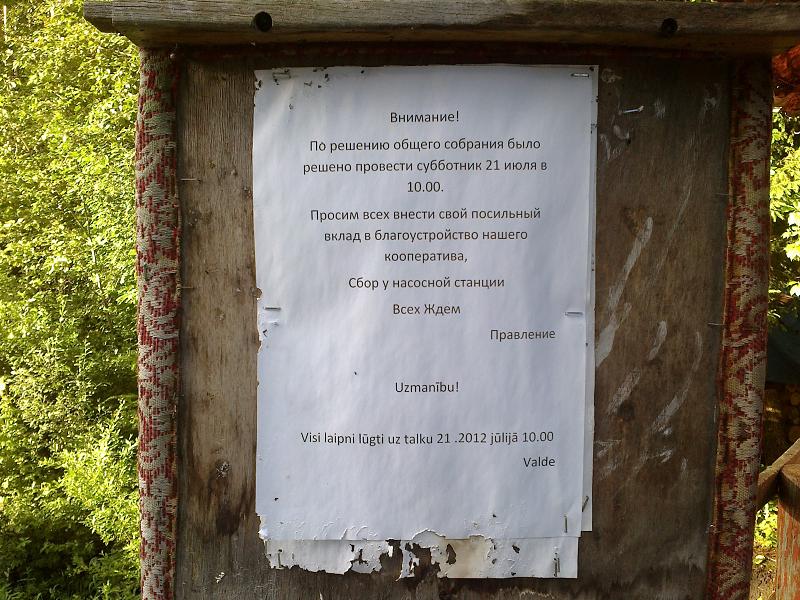 Внимание!
По решению общего собрания было
решено провести субботник 21 июля в
10.00.
Просим всех внести свой посильный
вклад в благоустройство нашего
кооператива,
Сбор у насосной станции
Всех Ждем
Правление
Uzmanību!
Visi laipni lūgti uz talku 21 .2012 jūlijā 10.00
Valde